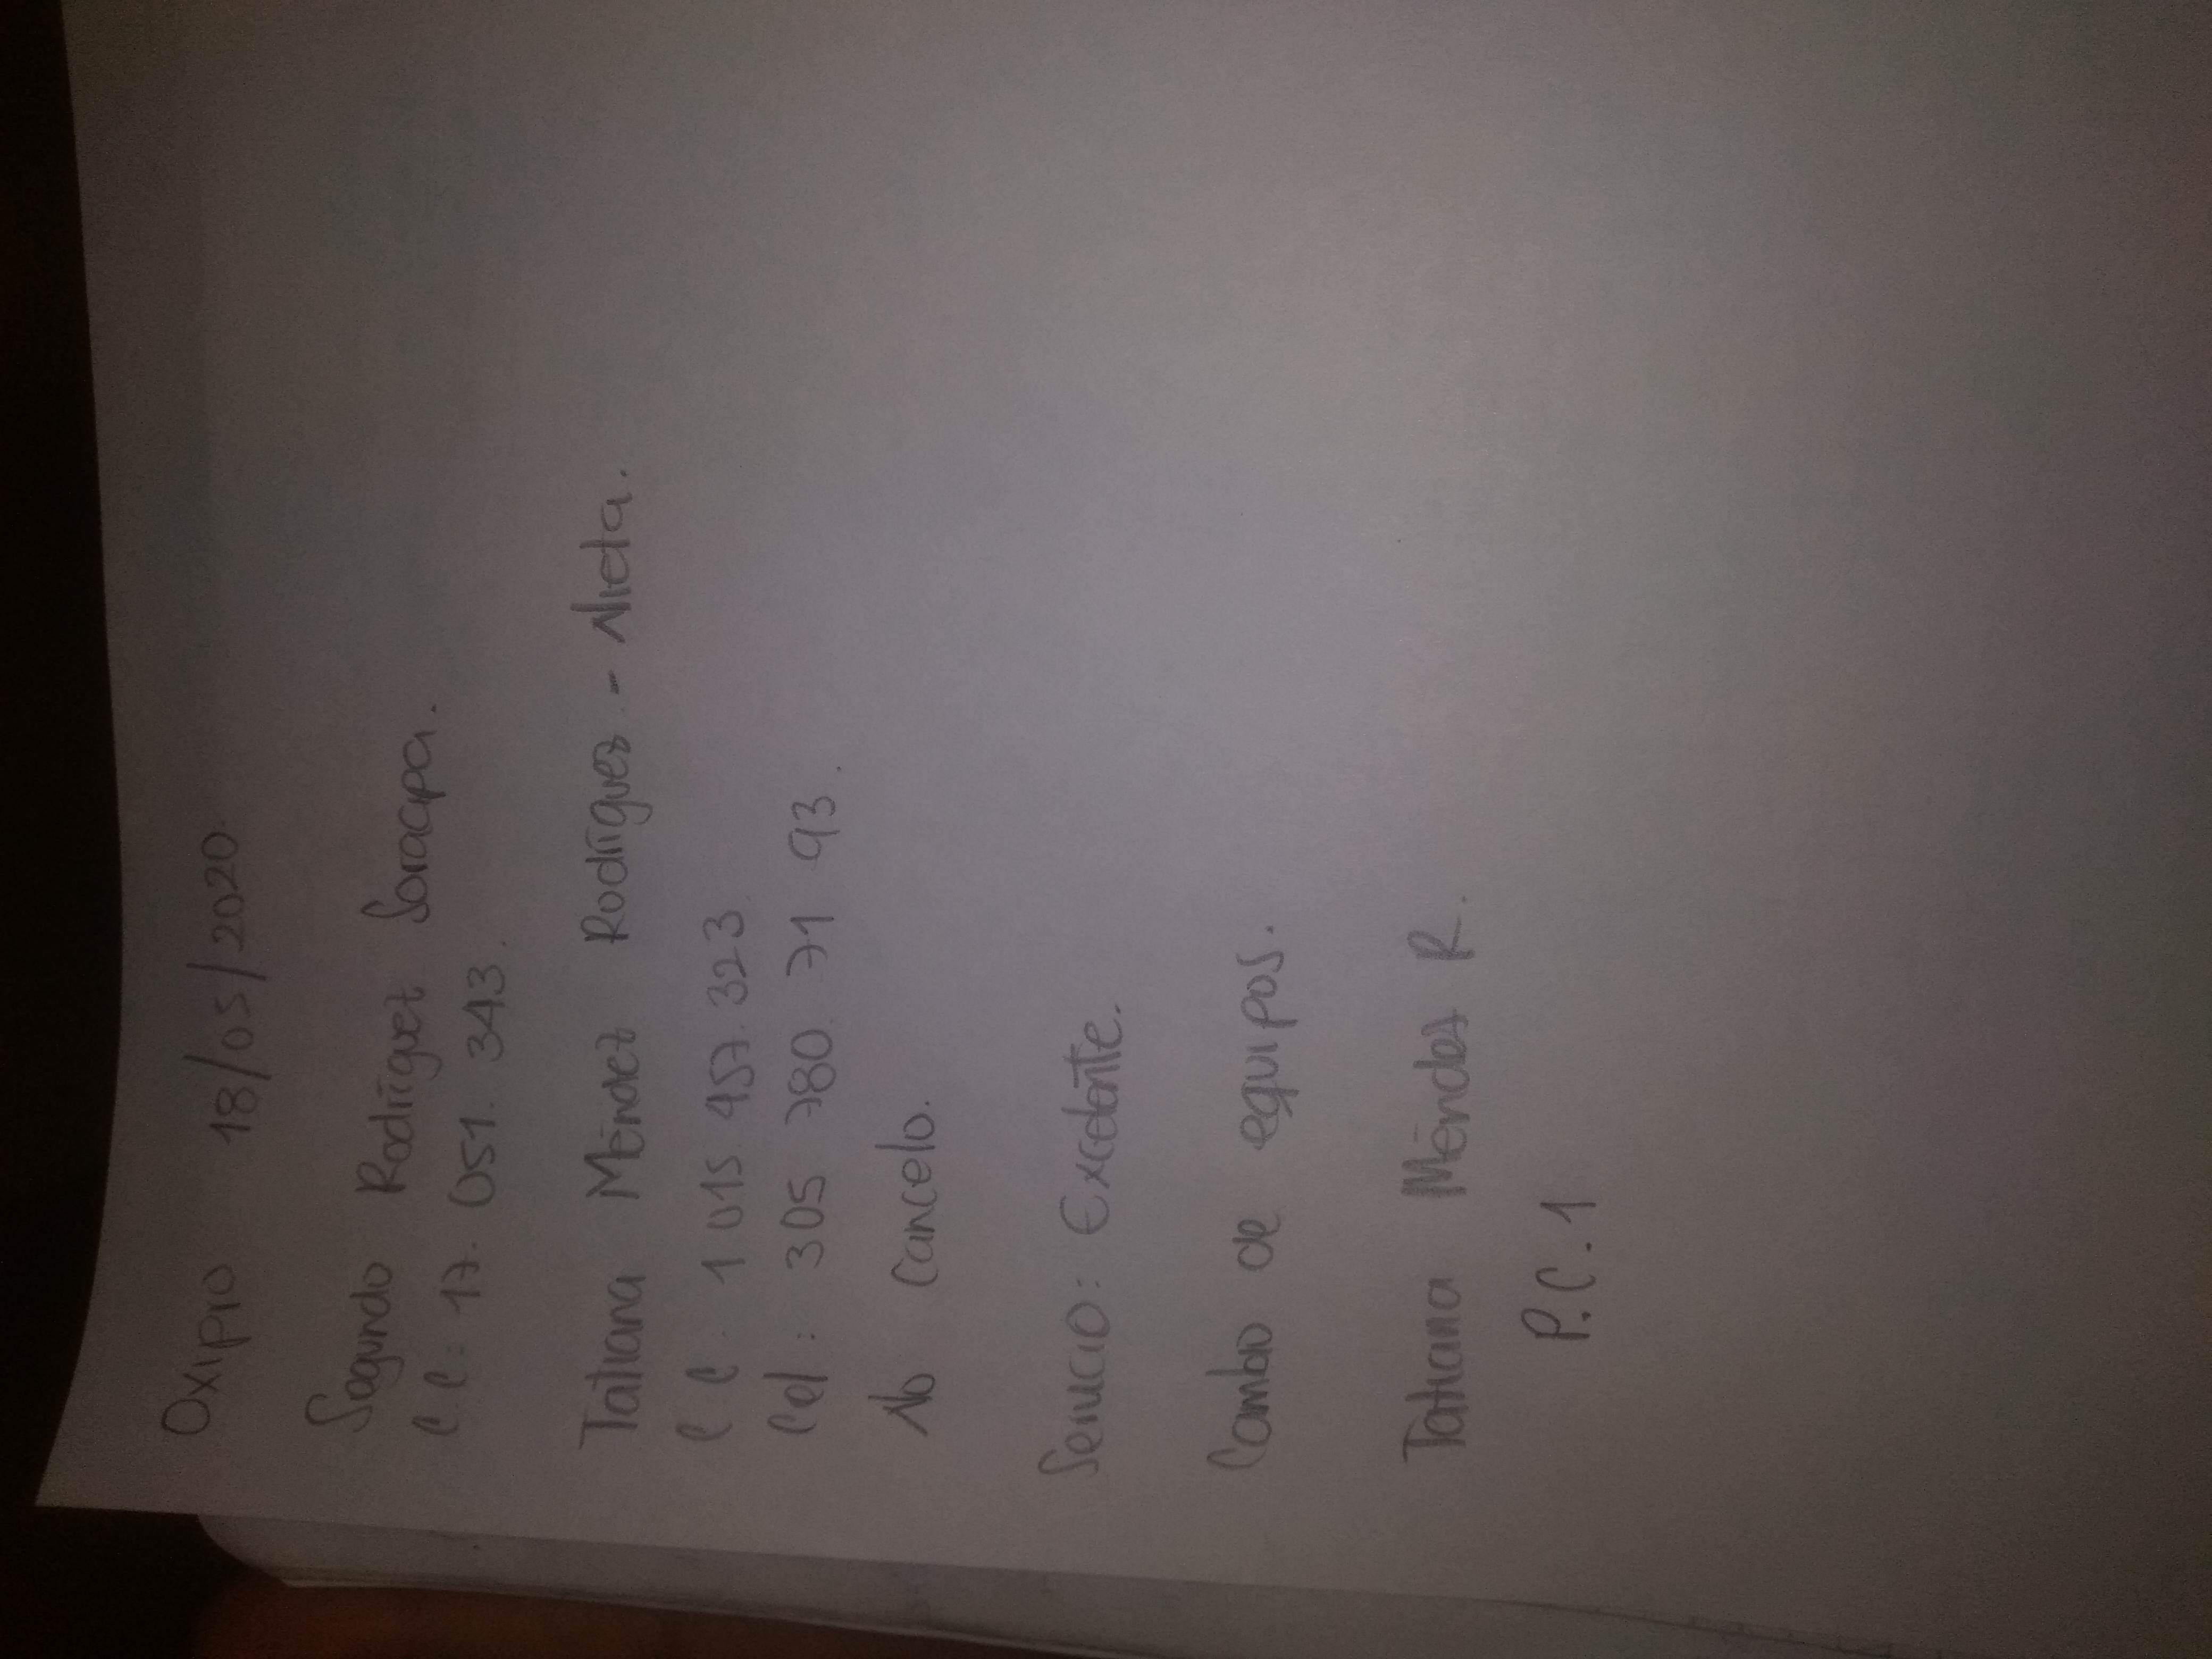 Oxipro 18/05/2020.
Segundo Rodríguez Soracipa.
C.C: 17.051.343.
Tatiana Méndez Rodríguez - Nieta.
C.C: 1 015 457 323
Cel: 305 780 71 93.
No Cancelo.
Servicio: Excelente.
Cambio de equipos.
Tatiana Méndez R.
P.C.1